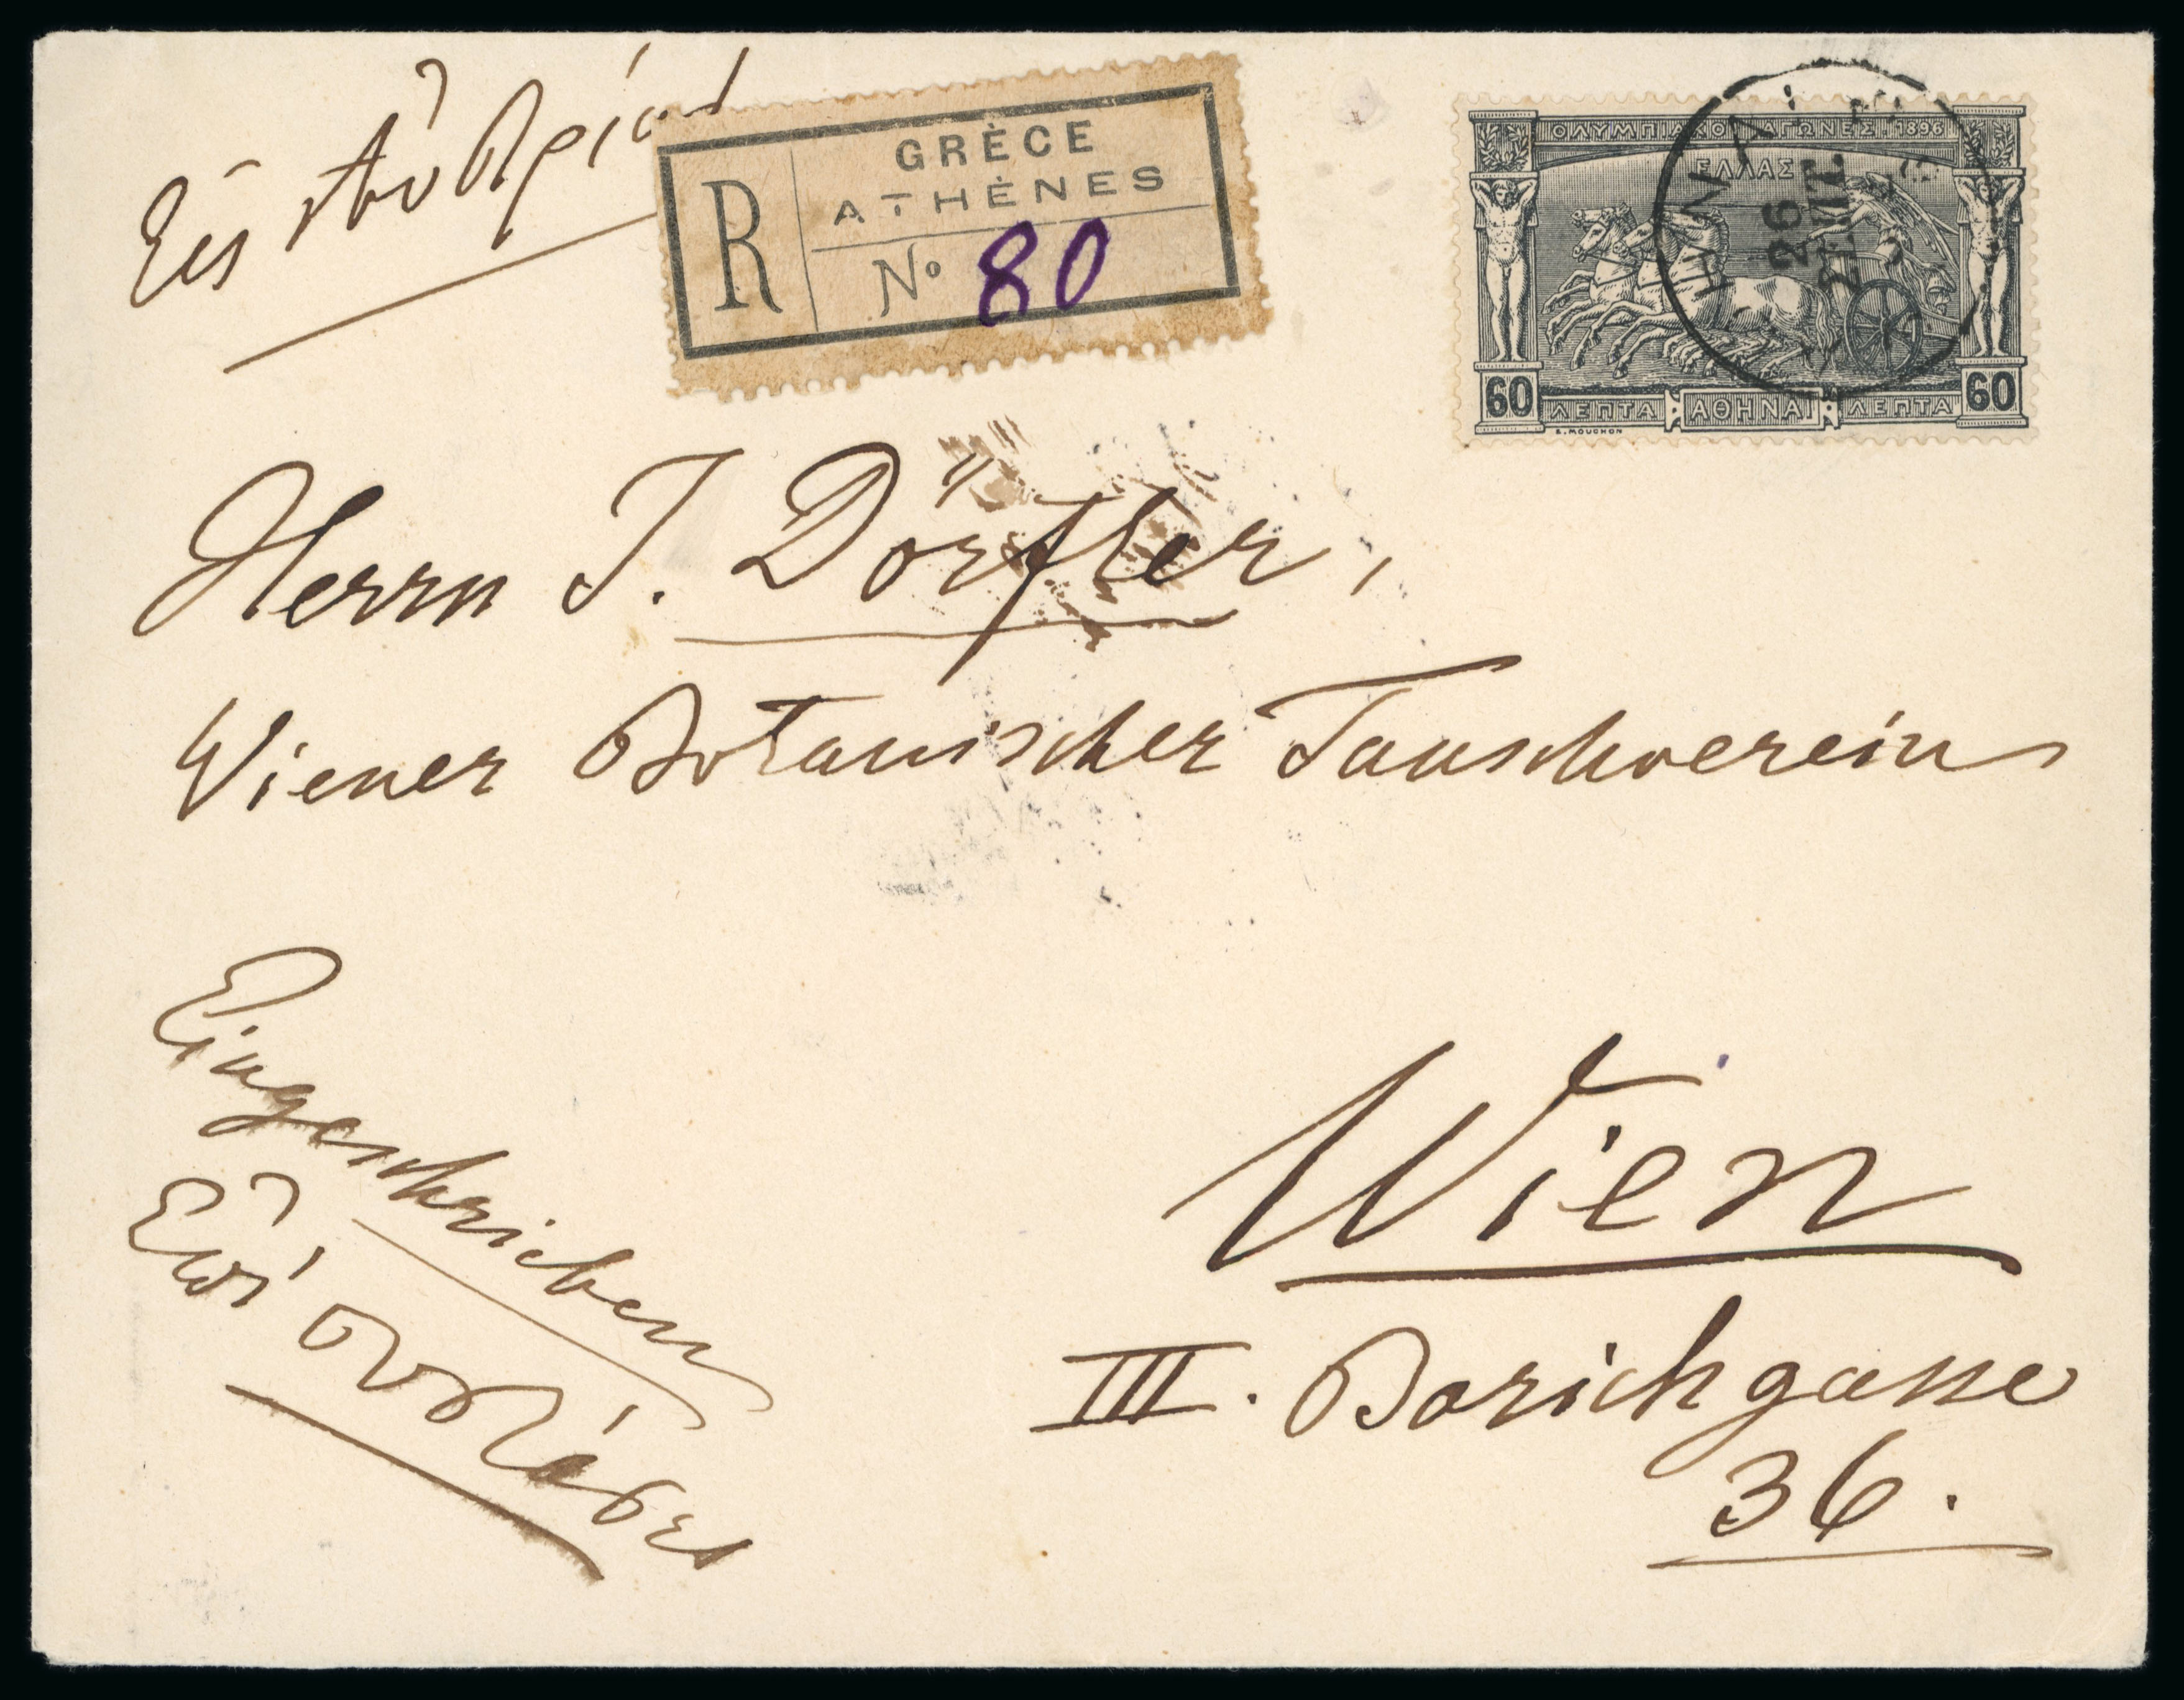 Εἰς Αὐστρίαν
GRÈCE
ATHÈNES
R
No 80
ΟΛΥΜΠΙΑΚΟΙ ΑΓΩΝΕΣ 1896
ΕΛΛΑΣ
26
ΣΕΠΤ
60 ΛΕΠΤΑ ΑΘΗΝΑΙ ΛΕΠΤΑ 60
E. MOUCHON
Herrn I. Dörfler,
Wiener Botanischer Tauschverein
Eingeschrieben
Ἐπὶ συστάσει
Wien
III. Barichgasse
36.